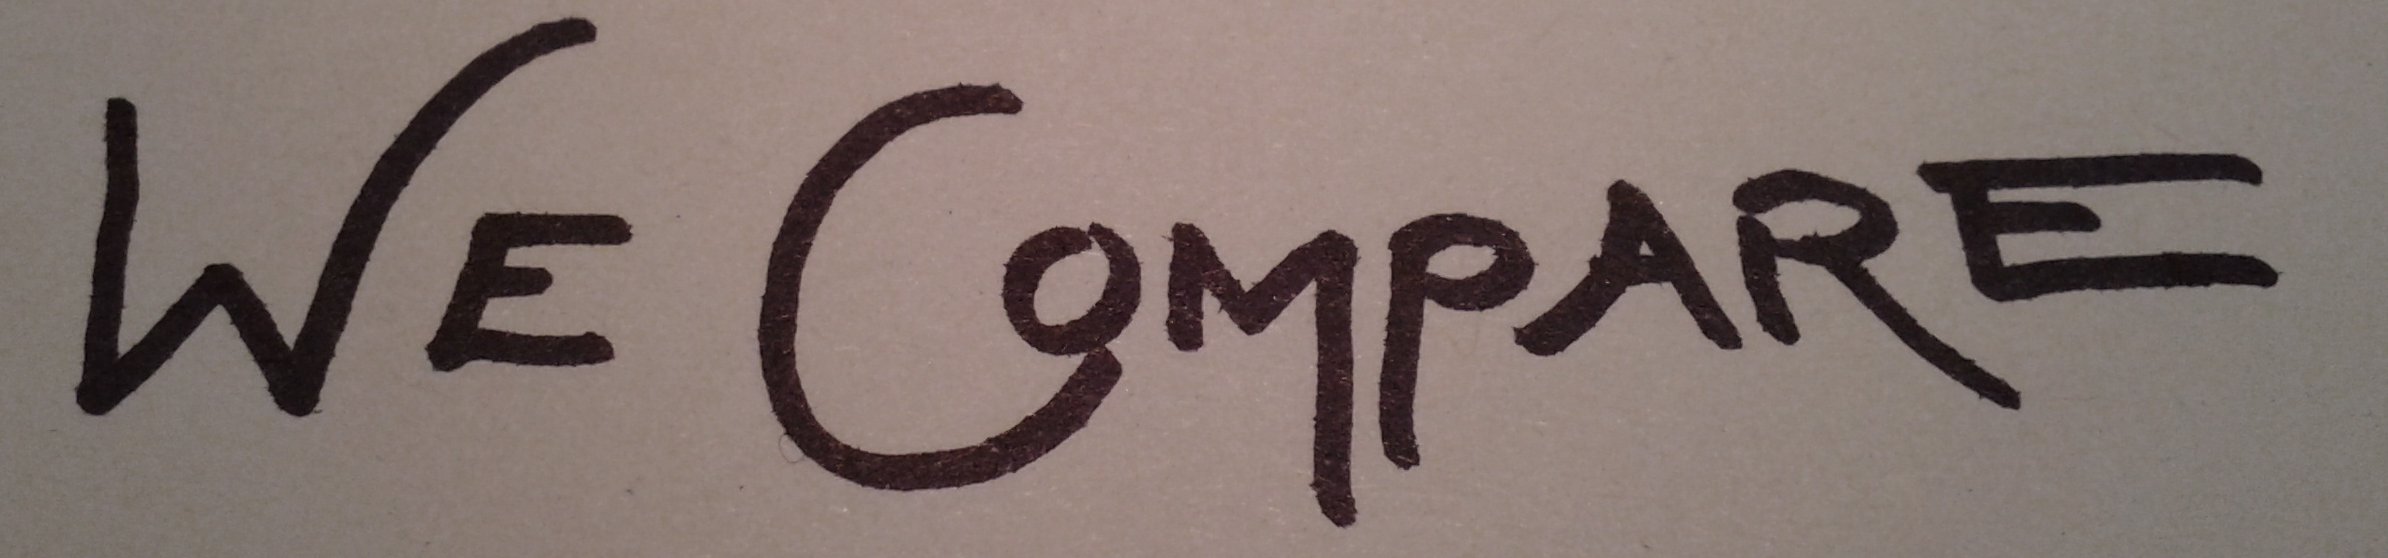 WE COMPARE